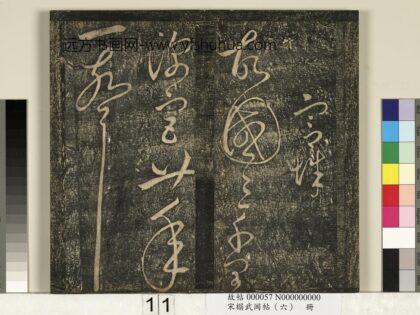 远方书画网- www.yfshuhua.com
故國三千里
深宮廿年
一聲
11
故帖 000057 N000000000
宋搨武岡帖（六） 冊